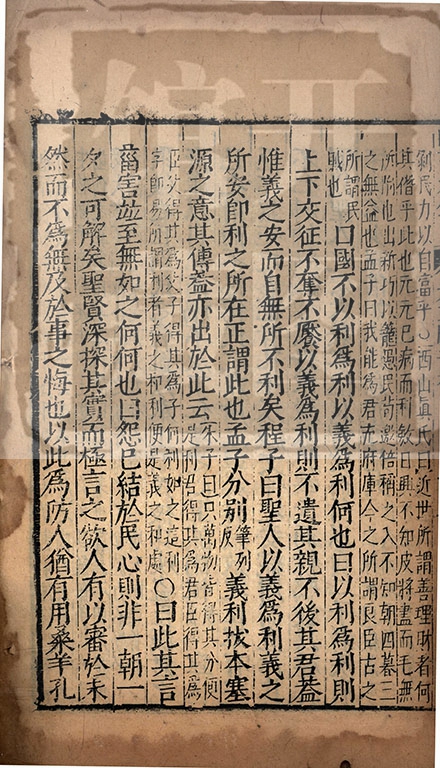 剝民力以自富乎○西山眞氏曰近世所謂善理財者何
其僭乎此也元元已病而利斂日興不知皮將盡而毛無
所附也出新巧以籠愚民苟邀倍稱之入不知朝四暮三
之無益也孟子曰我能爲君充府庫今之所謂良臣古之
所謂民
賊也
曰國不以利爲利以義爲利何也曰以利爲利則
上下交征不奪不饜以義爲利則不遺其親不後其君蓋
惟義之安而自無所不利矣程子曰聖人以義爲利義之
所安即利之所在正謂此也孟子分別
筆列
反
義利拔本塞
源之意其傳蓋亦出於此云
朱子曰只萬物皆得其分便
是利君得其爲君臣得其爲
臣父得其爲父子得其爲子何利如之這利
字即易所謂利者義之和利便是義之和處
○曰此其言
菑害並至無如之何何也曰怨已結於民心則非一朝一
夕之可解矣聖賢深探其實而極言之欲人有以審於未
然而不爲無及於事之悔也以此爲防人猶有用桑羊孔